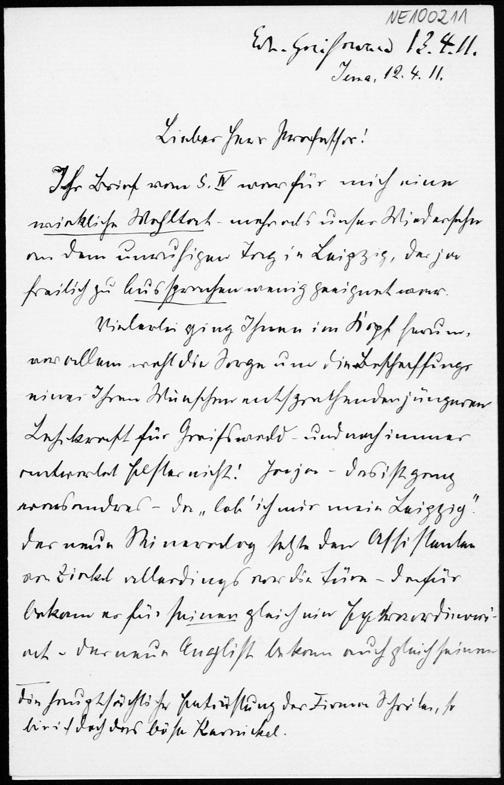 NE100211
Erh. Greifswald 13.4.11.
Jena, 12.4.11.
Lieber Herr Professor!
Ihr Brief vom 5. IV war für mich eine
wirkliche Wohltat – mehr als unser Wiedersehn
an dem unruhigen Tag in Leipzig, der ja
freilich zu Aussprachen wenig geeignet war.
Vielerlei ging Ihnen im Kopf herum,
vor allem wohl die Sorge um die Beschaffung
einer Ihren Wünschen entsprechenden jüngeren
Lehrkraft für Greifswald – und noch immer
antwortet nicht! Ja ja – das ist ganz
was andres – da „lob' ich mir mein Leipzig".
der neue Mineralog setzte den Assistenten
von Zirkel allerdings vor die Türe – dafür
bekam er für seinen gleich ein Extraordinari-
at – der neue Anglist bekam auch gleich seinen
Die hauptsächliche Entrüstung der Firma so
bin ich doch das böse Karnickel.